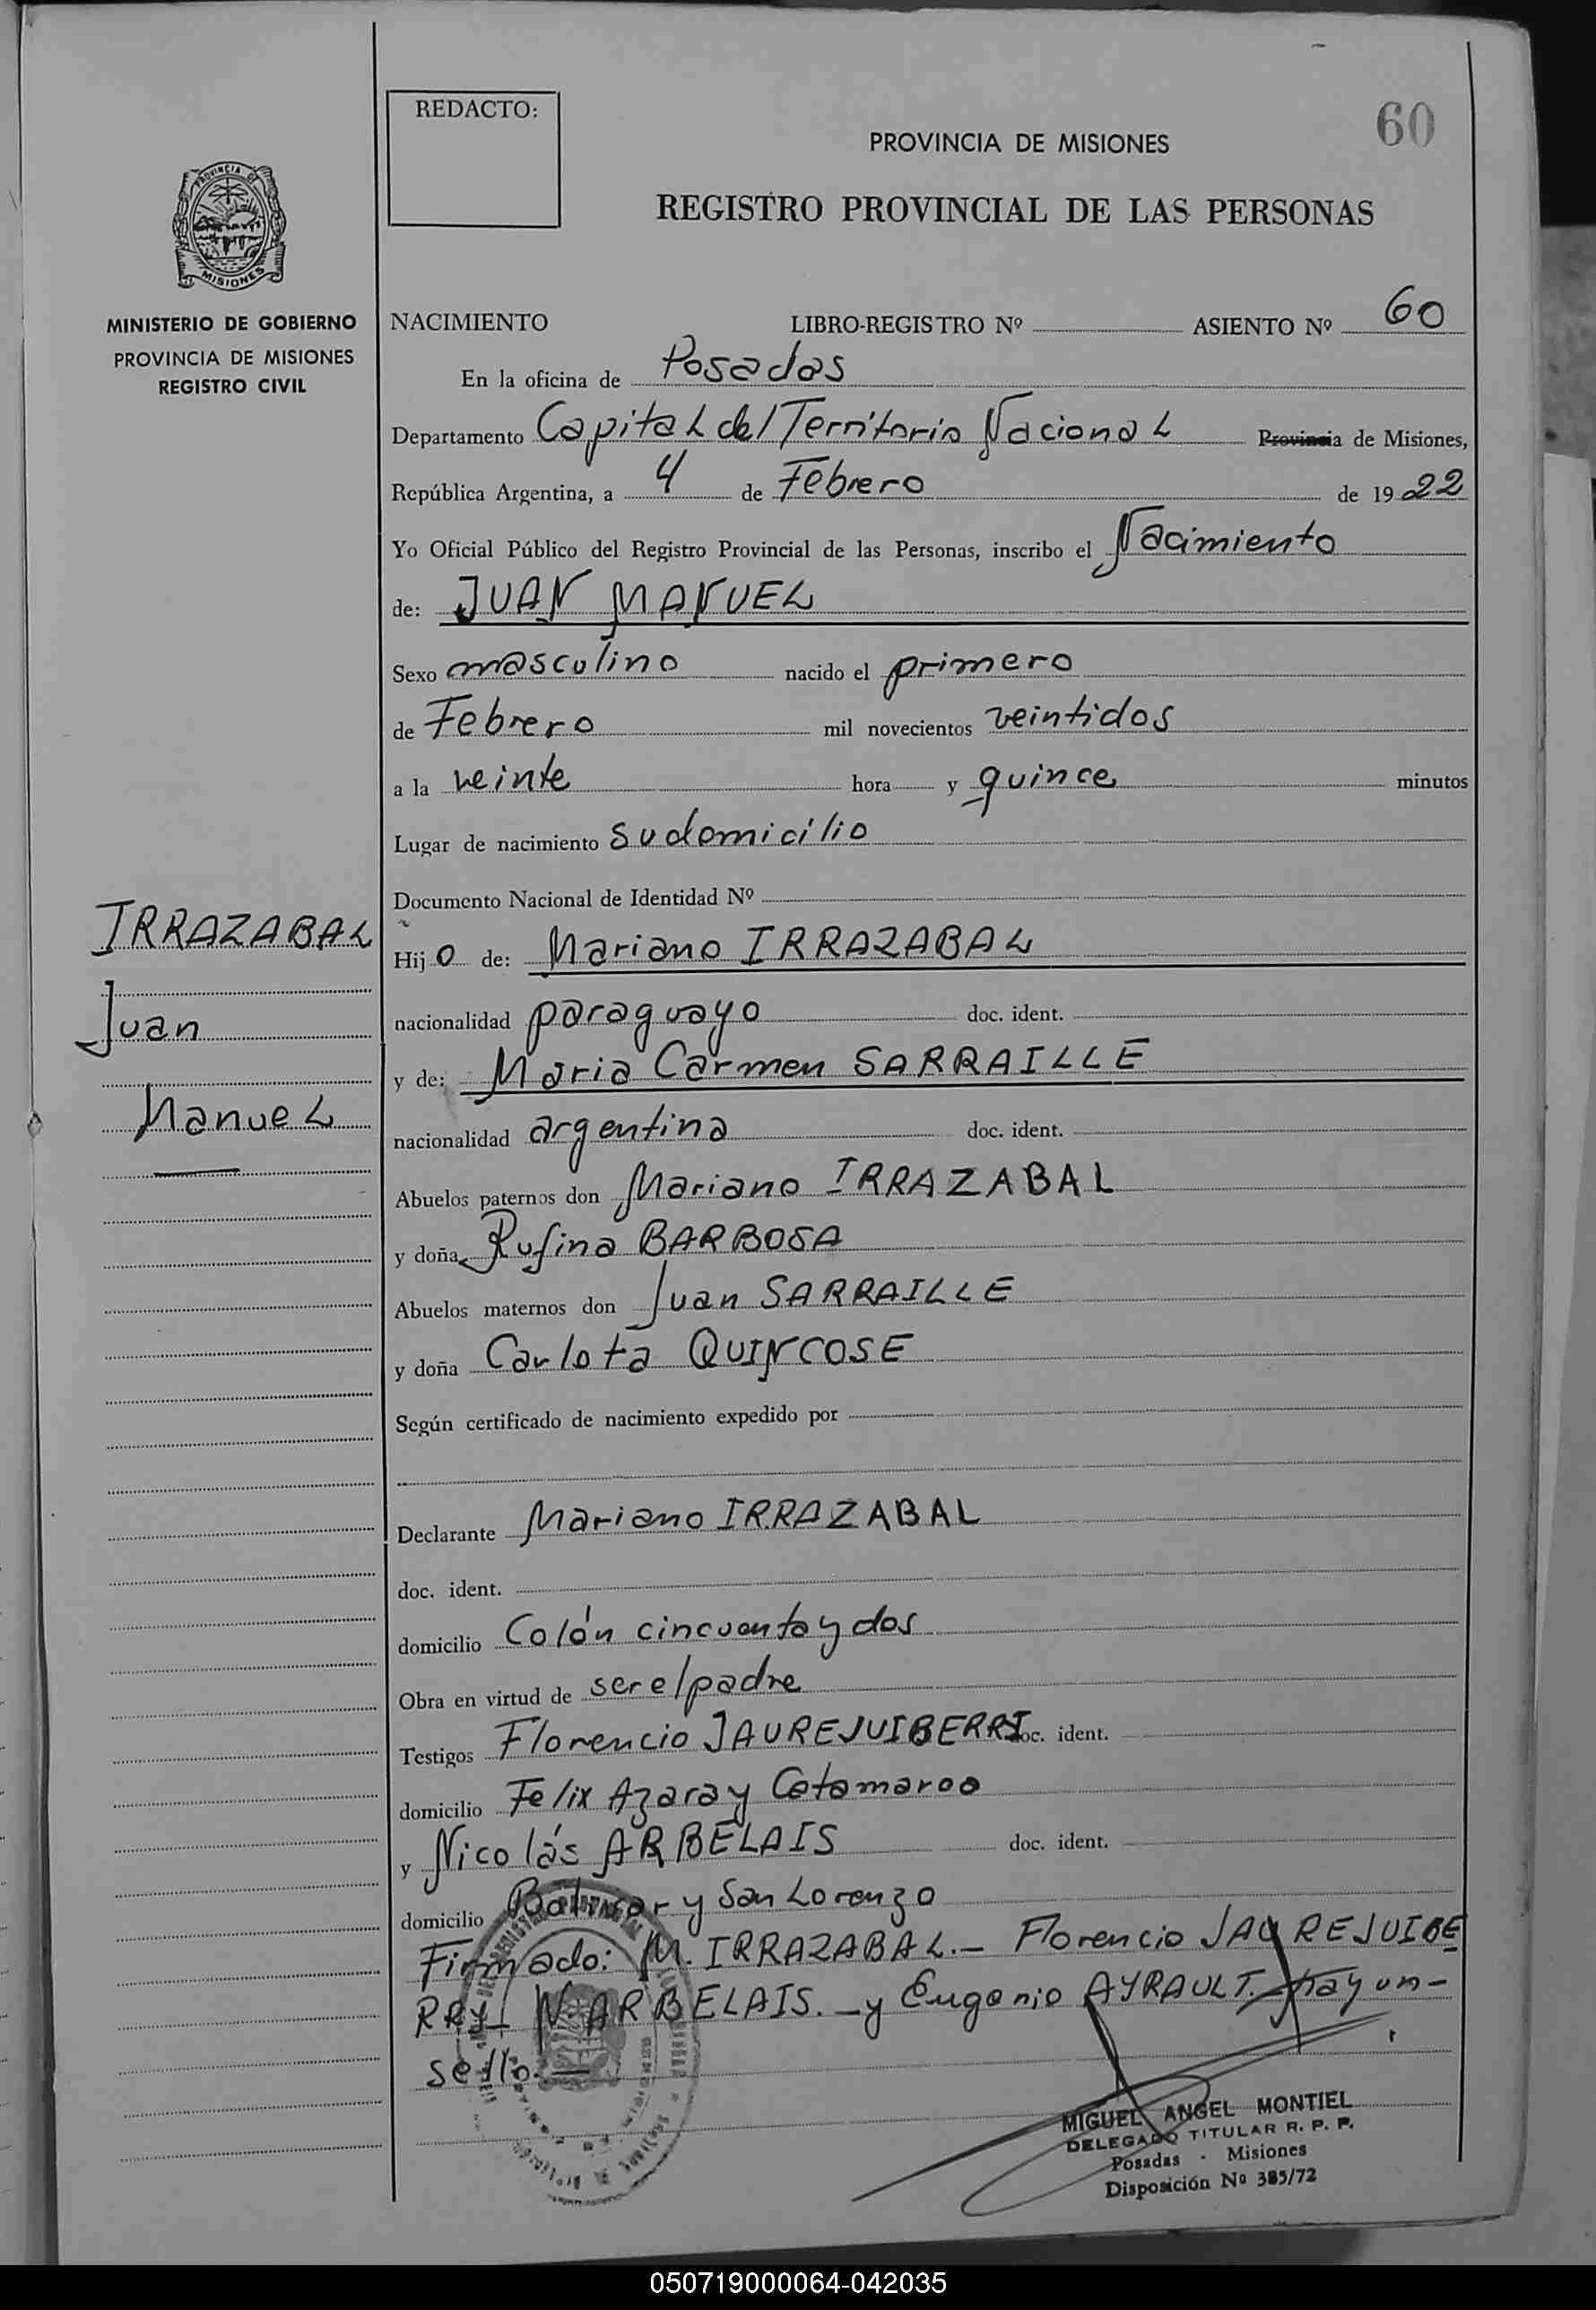 REDACTO:
60
PROVINCIA DE MISIONES
REGISTRO PROVINCIAL DE LAS PERSONAS
PROVINCIA DE
MISIONES
MINISTERIO DE GOBIERNO
PROVINCIA DE MISIONES
REGISTRO CIVIL
NACIMIENTO LIBRO-REGISTRO Nº ASIENTO Nº 60
En la oficina de Posadas
Departamento Capital del Territorio Nacional Provincia de Misiones,
República Argentina, a 4 de Febrero de 1922
Yo Oficial Público del Registro Provincial de las Personas, inscribo el Nacimiento
de: JUAN MANUEL
Sexo masculino nacido el primero
de Febrero mil novecientos veintidos
a la veinte hora y quince minutos
Lugar de nacimiento su domicilio
Documento Nacional de Identidad Nº
IRRAZABAL
Juan
Manuel
Hijo de: Mariano IRRAZABAL
nacionalidad paraguayo doc. ident.
y de: Maria Carmen SARRAILLE
nacionalidad argentina doc. ident.
Abuelos paternos don Mariano IRRAZABAL
y doña Rufina BARBOSA
Abuelos maternos don Juan SARRAILLE
y doña Carlota QUINCOSE
Según certificado de nacimiento expedido por
Declarante Mariano IRRAZABAL
doc. ident.
domicilio Colón cincuenta y dos
Obra en virtud de ser el padre
Testigos Florencio JAUREJUIBERRI doc. ident.
domicilio Felix Azara y Catamarca
y Nicolás ARBELAIS doc. ident.
domicilio Bolivar y San Lorenzo
Firmado: M. IRRAZABAL.- Florencio JAUREJUIBE
RRY- N. ARBELAIS.-y Eugenio AYRAULT.-hay un-
sello.-
MIGUEL ANGEL MONTIEL
DELEGADO TITULAR R. P. P.
Posadas - Misiones
Disposición Nº 385/72
050719000064-042035